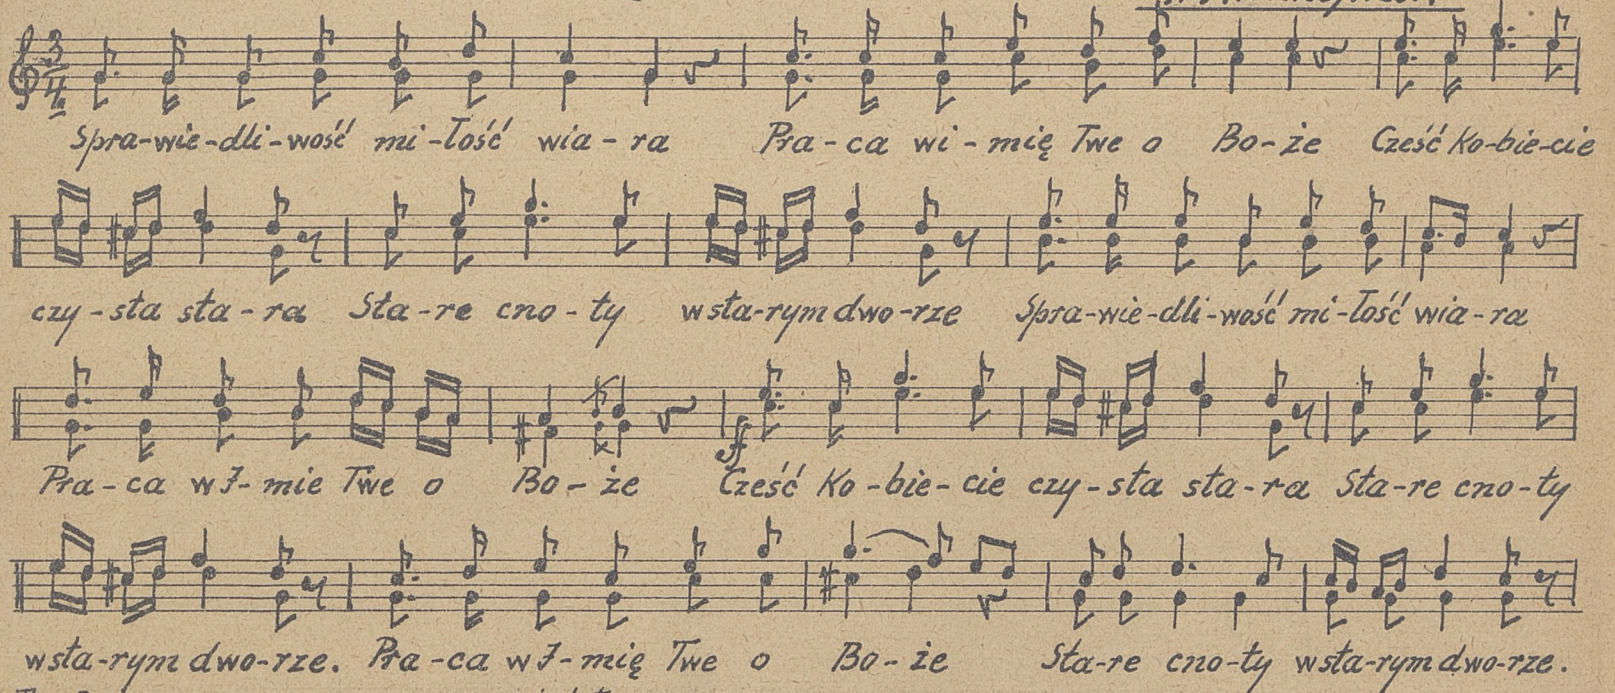 3/4
Spra-wie-dli-wość mi-łość wia-ra Pra-ca wi-mię Twe o Bo-że Cześć Ko-bie-cie
czy-sta sta-ra Sta-re cno-ty wsta-rym dwo-rze Spra-wie-dli-wość mi-łość wia-ra
Pra-ca w I-mie Twe o Bo-że Cześć Ko-bie-cie czy-sta sta-ra Sta-re cno-ty
wsta-rym dwo-rze. Pra-ca w I-mię Twe o Bo-że Sta-re cno-ty wsta-rym dwo-rze.